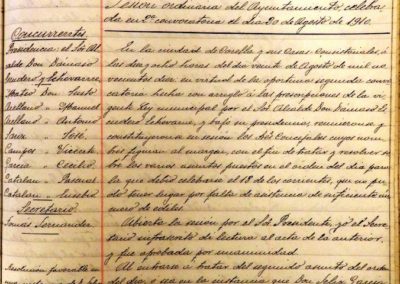 Sesion ordinaria del Ayuntamiento, celebra-
da en 2ª convocatoria el dia 20 de Agosto de 1910.
Concurrentes
Presidencia el Sor Al-
calde Don Damaso
Ledesma y Echevarria
Matias Don Justo
Arellano " Manuel
Arellano " Antonio
José
Campos Vicente
Garcia " Cecilio
Catalan " Pascual
Catalan " Eusebio
Secretario
Tomas Fernandez
En la ciudad de Corella y sus Casas Consistoriales, á
las diez y ocho horas del dia veinte de Agosto de mil no-
vecientos diez en virtud de la oportuna segunda convo-
catoria hecha con arreglo á las prescripciones de la vi-
gente Ley municipal por el Sor Alcalde Don Damaso
y bajo su presidencia reunieronse y
constituyeronse en sesion los Sres Concejales cuyos nom-
bres figuran al margen, con el fin de tratar y resolver so-
bre los varios asuntos puestos en el orden del dia para
la que debió celebrarse el 18 de los corrientes, que no pu-
do tener lugar por falta de asistencia de suficiente nú-
mero de ediles.
Abierta la sesion por el Sor Presidente, yo el Secre-
tario infrascrito di lectura al acta de la anterior,
y fue aprobada por unanimidad.
Al entrarse á tratar del segundo asunto del orden
del dia, ó sea en la instancia que Don Felix